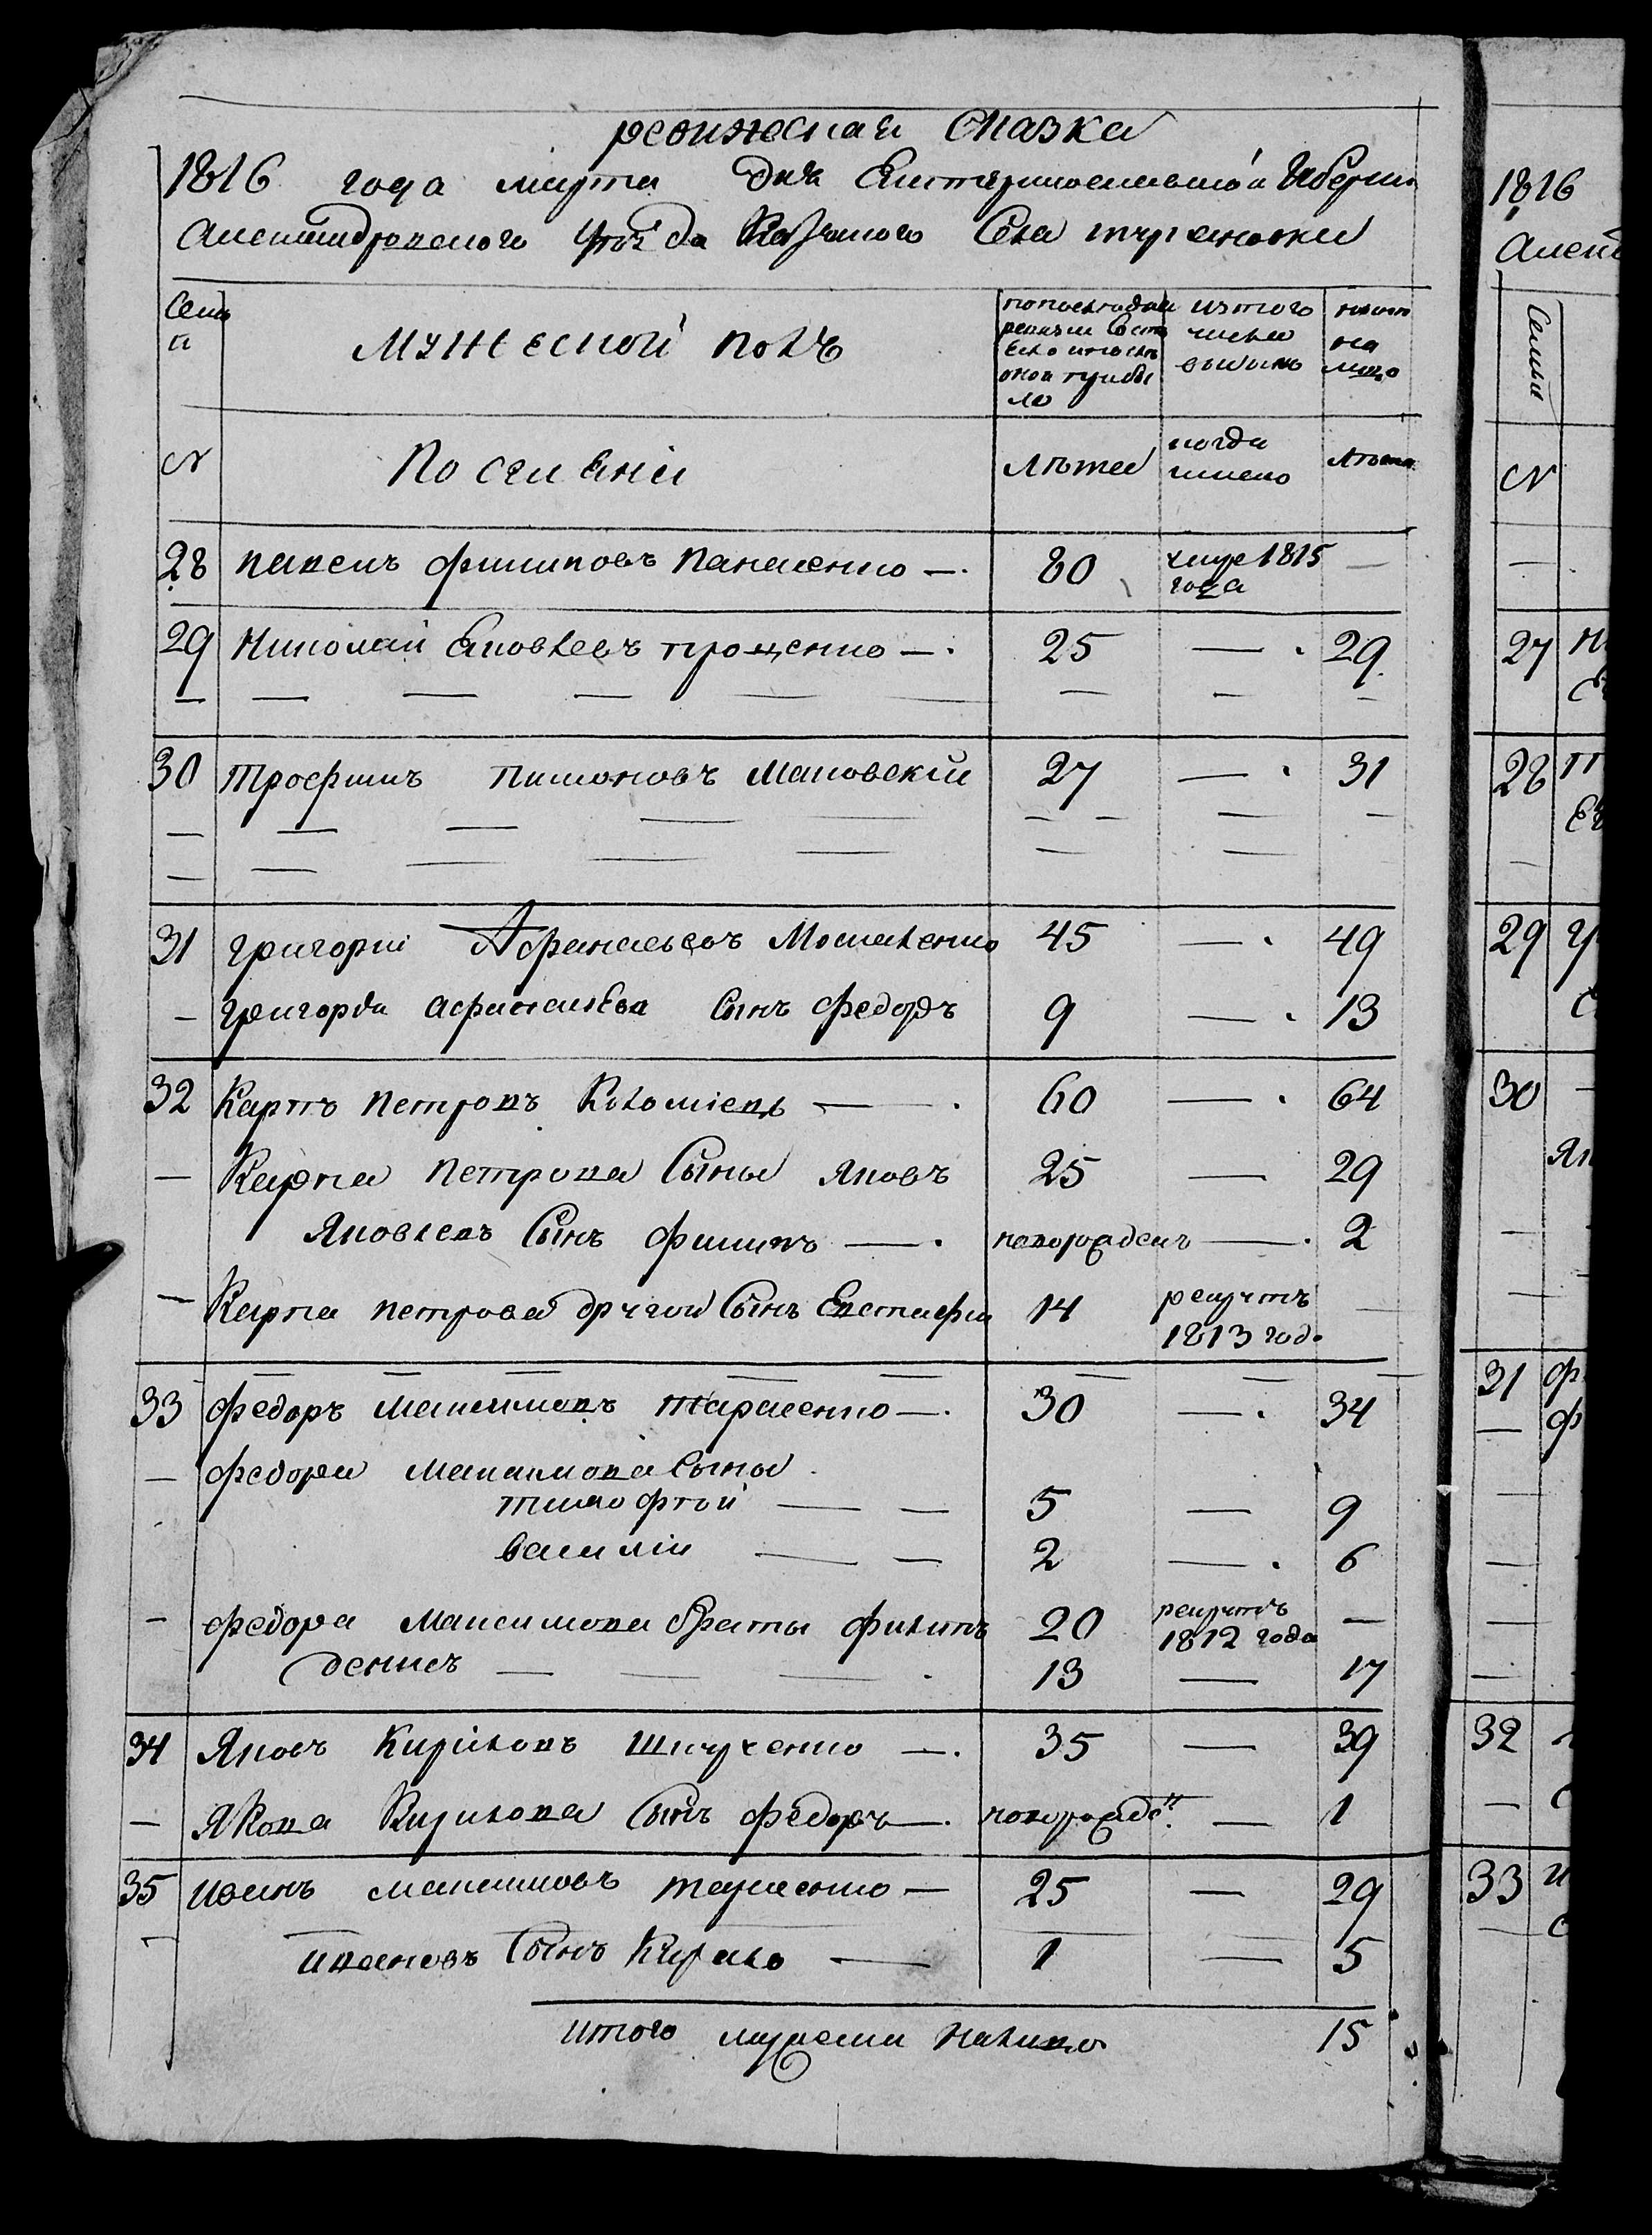 ревижская Сказка
1816 года марта дня Екатеринославской Губерни
Александровского уезда Казенного Села терновки
Семи
и
мужеской полъ
попоследней
ревизии Сост
Ело и после
оной прибы
ло
изтого
числа
выбыло
ныне
на
лицо
N
Поселяни
лета
когда
имено
лета
28 павелъ филиповъ панасенко — 80 умре 1815 года —
29 Николай Яковлевъ проценко — 25 — 29
30 трофимъ пимоновъ маковскiй 27 — 31
31 григорiй Афанасьевъ Москаленко 45 — 49
— григорiя афанасьева Сынъ федоръ 9 — 13
32 Карпъ петровъ Коломiецъ — 60 — 64
— Карпа петрова Сыны яковъ 25 — 29
Яковлевъ Сынъ филипъ — новорожденъ — 2
— Карпа петрова другой Сынъ Евстафiй 14 рекрутъ 1813 года —
33 федоръ максимовъ тарасенко — 30 — 34
— федора максимова Сыны
тимофтой — — 5 — 9
василiй — — 2 — 6
— федора максимова браты филипъ 20 рекрутъ 1812 года —
денисъ — 13 — 17
34 Яковъ Кириловъ Шкученко — 35 — 39
— Якова Кирилова Сынъ федоръ — новорожде — 1
35 иванъ максимовъ тарасенко — 25 — 29
— ивановъ Сынъ Кирило — 1 — 5
итого мужеска налицо 15
1816
Алек
Семьи
N
27
28
29
30
31
32
33